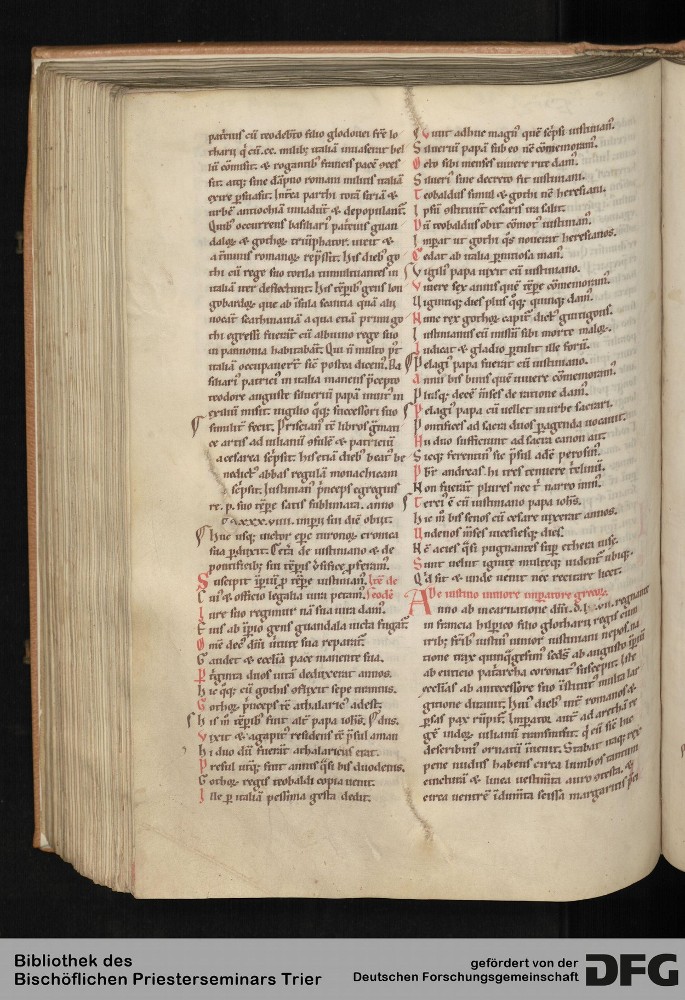 patrius cū teodebto filio glodouei fr̄e lo
tharii q̇ cū .cc. milib; italiā inuaserat bel
lū cōmisit. & rogantib; francis pacē
sit. atq; sine dāpno romani militis italiā
exire ꝑsuasit. Int̄ea parthi totā siriā &
urbē antiochiā inuadūt & depopulant̄.
Quib; occurrens basiliari᷒ patrius guan
dalos & gothos triūphator. uicit &
romanos rep̄ssit. His dieb; go
thi cū rege suo totila tumultuantes in
italiā iter deflectunt. his tēpib; gens lon
gobardoꝝ que ab īsula scantia quā alii
uocant scathinauiā a qua etiā primi go
thi egressi fuerāt cū albuino rege suo
in pannonia habitabāt. Qui n̄ multo p᷒t
italiā occupauerūt sic̄ postea dicem᷒.
siliari᷒ patrici᷒ in italia manens p̄cepto
teodore auguste siluerium papā mittit in
exiliū misit. uigilio q̊q; successori suo
similit̄ fecit. Priscian᷒ libros g̃man
ce artis ad iulianū & patriciū
a cesarea sc̄psit. his etiā dieb; beat᷒ be
nedict᷒ abbas regulā monachicam
sc̄psit. Iustinian᷒ p̄nceps egregius
re. p. suo tēpe satis sublimata. anno
.xxx.viiii. imp̄ii sui diē obiit.
Huc usq; uictor ep̄c turonoꝝ cronica
sua ꝑduxit. Cet̄a de iustiniano & de
pontificib; sui tēpis ꝑferam᷒.
Suscipit īperiū ꝑ tēpe iustinian᷒.
Iui᷒ & officio legalia iura petam᷒.
Iure suo regimur nā sua iura dam᷒.
Eui᷒ ab īperio gens guandala uicta fugat᷒.
Om̄e dec᷒ dn̄i uirtute sua reparat᷒.
Gaudet & eccl̄ia pace manente sua.
P̄ginta duos uitā deduxerat annos.
Hic q̊q; cū gothis offixit sepe manus.
Gothoꝝ p̄nceps tc̄ athalaric᷒ adest.
His m̄ tēpib; fuit alt̄ papa ioh̄s.
Vixit & agapit᷒ residens tc̄ p̄sul aman
Hi duo dū fuerāt athalaricus erat.
Presul ut̊q; fuit annis q̄si bis duodenis.
Gothoꝝ regis teobaldi copia uenit.
Ille ꝑ italiā pessima gesta dedit.
Viuit adhuc magn᷒ quē sc̄psi iustinian᷒.
Siueriū papā sub eo nc̄ cōmemoram᷒.
Octo sibi menses uiuere rite dam᷒.
Siueri᷒ sine decreto fit iustiniani.
Teobaldus simul & gothi nc̄ heresiani.
Ipsū cesaris ira salit.
Dū teobaldus obit cōmot᷒ iustinian᷒.
Impat ut gothi q̊s nouerat heresianos.
Cedat ab italia ꝑniciosa man᷒.
Vigili᷒ papa uixit cū iustiniano.
Viuere sex annis quē tēpe cōmemoram᷒.
Uiginiq; dies plus q̊q; quinq; dam᷒.
Hunc rex gothoꝝ capit᷒
Iustinianus cū misīū sibi morte maloꝝ.
Iudicat & gladio ꝑculit ille foriū.
Pelagi᷒ papa fuerat cū iustiniano.
Annis bis binis quē uiuere cōmemoram᷒.
Plusq; decē m̄ses de ratione dam᷒.
Pelagi᷒ papa cū uellet in urbe sacrari.
Pontifices ad sacra duos ꝑagenda uocauit.
Hii duo sufficiunt ad sacra canon ait.
Sicq; ferentin᷒ sic p̄sul adē perosin᷒.
Pb̄r andreas. hi tres tenuere
Non fuerāt plures nec narro min᷒.
Terci᷒ ē cū iustiniano papa ioh̄s.
Hic m̄ bis senos cū cesare uixerat annos.
Undenos m̄ses uicesiesq; dies.
Nc̄ acies q̄si pugnantes sup ethera uise.
Sunt uelut ignite multeq; uident᷒ ubiq;.
Qd̄ sit & unde uenit nec recitare licet.
De iustino minore imꝑatore grecoꝝ.
Anno ab incarnatione dn̄i. regnante
in francia hilperico filio glotharii regis cum
trib; fr̄ib; iustin᷒ iunior iustiniani nepos
tione trax quinq̊gesim᷒ sed᷒ ab augusto
ab euticio pat̄archa coronat᷒ suscepit. Iste
eccl̄ias ab antecessore suo
gitione ditauit. Hui᷒ dieb; int̄ romanos &
ꝑsas pax rūpit᷒. Imꝑator aut̄ ad
gē indoꝝ iulianū transmisit. q̇ cū sic
describim᷒ ornatū inuenit. Stabat naq; rex
pene nudus habens circa lumbos tantum
cinctura & linea uestim̄ta auro &
circa uentrē scissa margaritis
Bibliothek des
Bischöflichen Priesterseminars Trier
gefördert von der
Deutschen Forschungsgemeinschaft
DFG